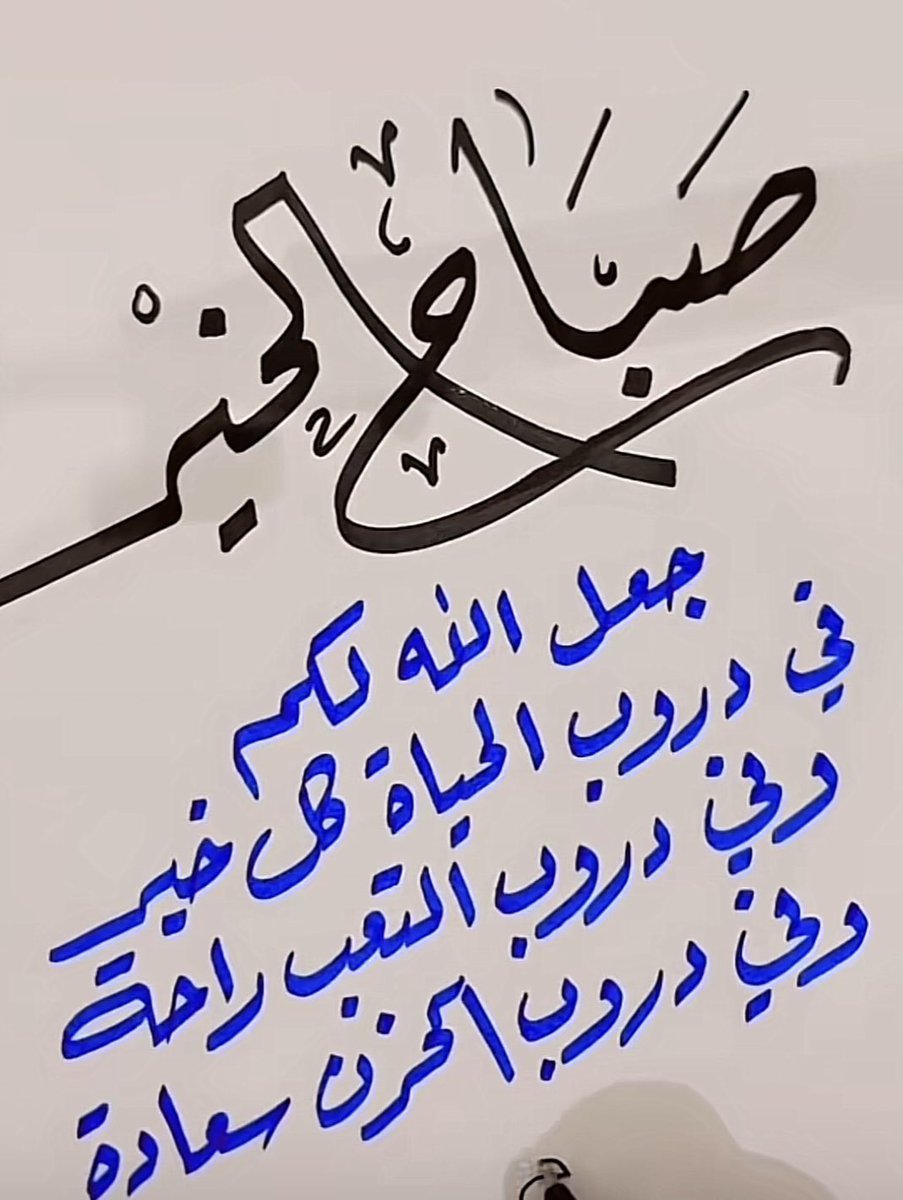 صَبَاحُ الخيْر
جعل الله لكم
في دروب الحياة كل خير
وفي دروب التعب راحة
وفي دروب الحزن سعادة